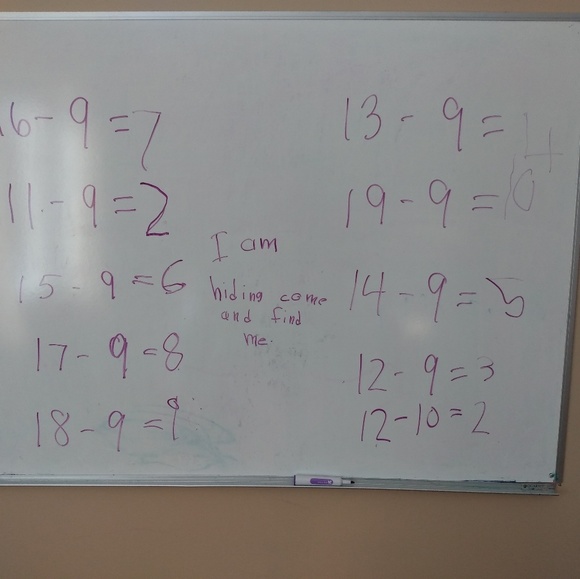 16 - 9 = 7
11 - 9 = 2
15 - 9 = 6
17 - 9 = 8
18 - 9 = 9
I am
hiding come
and find
me.
13 - 9 = 4
19 - 9 = 10
14 - 9 = 5
12 - 9 = 3
12 - 10 = 2